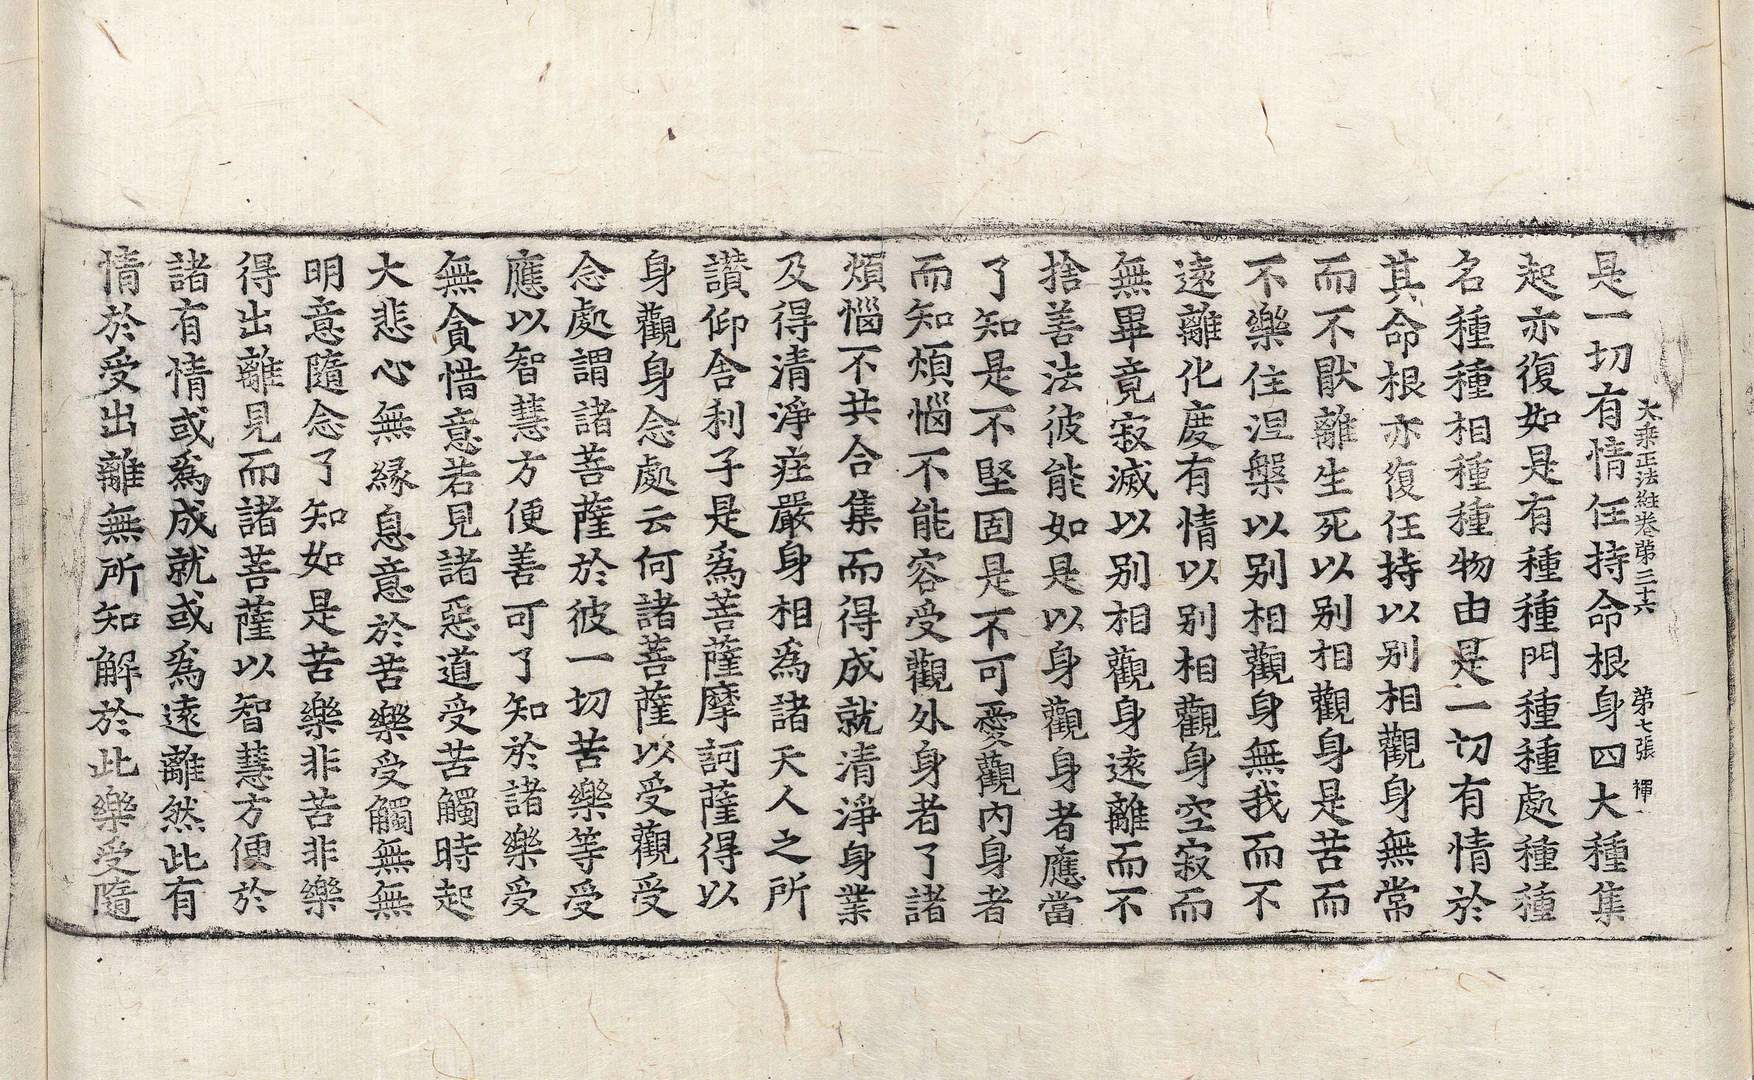 大乘正法經卷第三十六 第七張 禪
是一切有情任持命根身四大種集
起亦復如是有種種門種種處種種
名種種相種種物由是一切有情於
其命根亦復任持以別相觀身無常
而不猒離生死以別相觀身是苦而
不樂住涅槃以別相觀身無我而不
遠離化度有情以別相觀身空寂而
無畢竟寂滅以別相觀身遠離而不
捨善法彼能如是以身觀身者應當
了知是不堅固是不可愛觀內身者
而知煩惱不能容受觀外身者了諸
煩惱不共合集而得成就清淨身業
及得清淨莊嚴身相為諸天人之所
讚仰舍利子是為菩薩摩訶薩得以
身觀身念處云何諸菩薩以受觀受
念處謂諸菩薩於彼一切苦樂等受
應以智慧方便善可了知於諸樂受
無貪惜意若見諸惡道受苦觸時起
大悲心無緣息意於苦樂受觸無無
明意隨念了知如是苦樂非苦非樂
得出離見而諸菩薩以智慧方便於
諸有情或為成就或為遠離然此有
情於受出離無所知解於此樂受隨